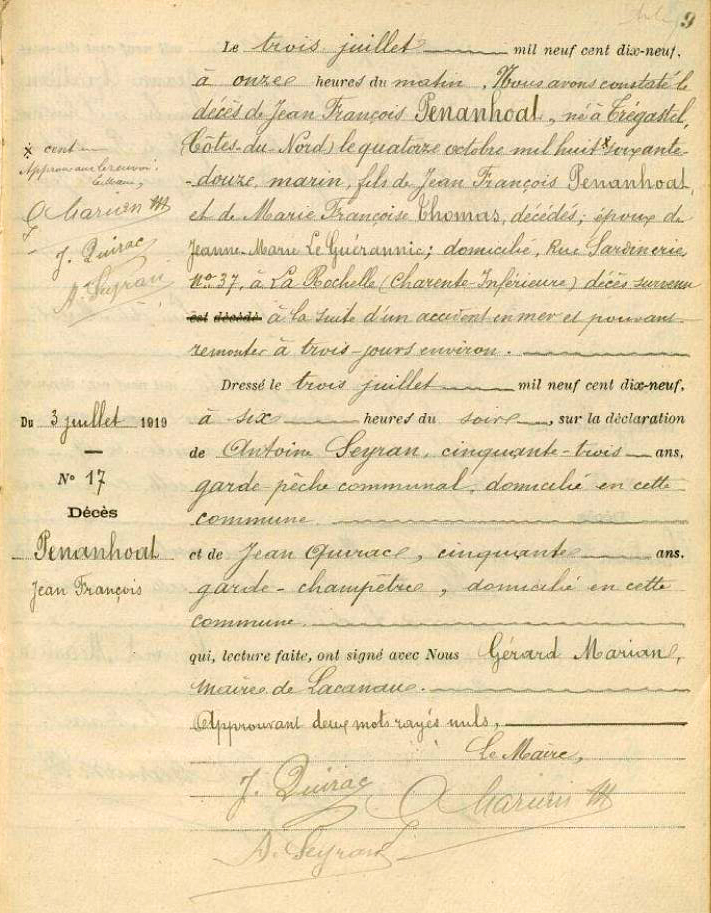 9
Le trois juillet mil neuf cent dix-neuf,
à onze heures du matin, Nous avons constaté le
décès de Jean François Penanhoat, né à Trégastel,
Côtes-du-Nord) le quatorze octobre mil huit x soixante-
-douze, marin, fils de Jean François Penanhoat,
et de Marie Françoise Thomas, décédés; époux de
Jeanne-Marie Le Guérannic; domicilié, Rue Sardinerie,
No. 37, à La Rochelle (Charente-Inférieure) décès survenu
est décédé à la suite d'un accident en mer et pouvant
remonter à trois-jours environ.
x cent
Approuvant le renvoi:
Le Maire,
G Marian
J. Quirac
A. Seyran
Du 3 juillet 1919
No 17
Décès
Penanhoat
Jean François
Dressé le trois juillet mil neuf cent dix-neuf,
à six heures du soir, sur la déclaration
de Antoine Seyran, cinquante-trois ans,
garde-pêche communal, domicilié en cette
commune
et de Jean Quirac, cinquante ans,
garde-champêtre, domicilié en cette
commune.
qui, lecture faite, ont signé avec Nous Gérard Marian,
Maire de Lacanau.
Approuvant deux mots rayés nuls,
Le Maire,
J. Quirac
G Marian
A. Seyran